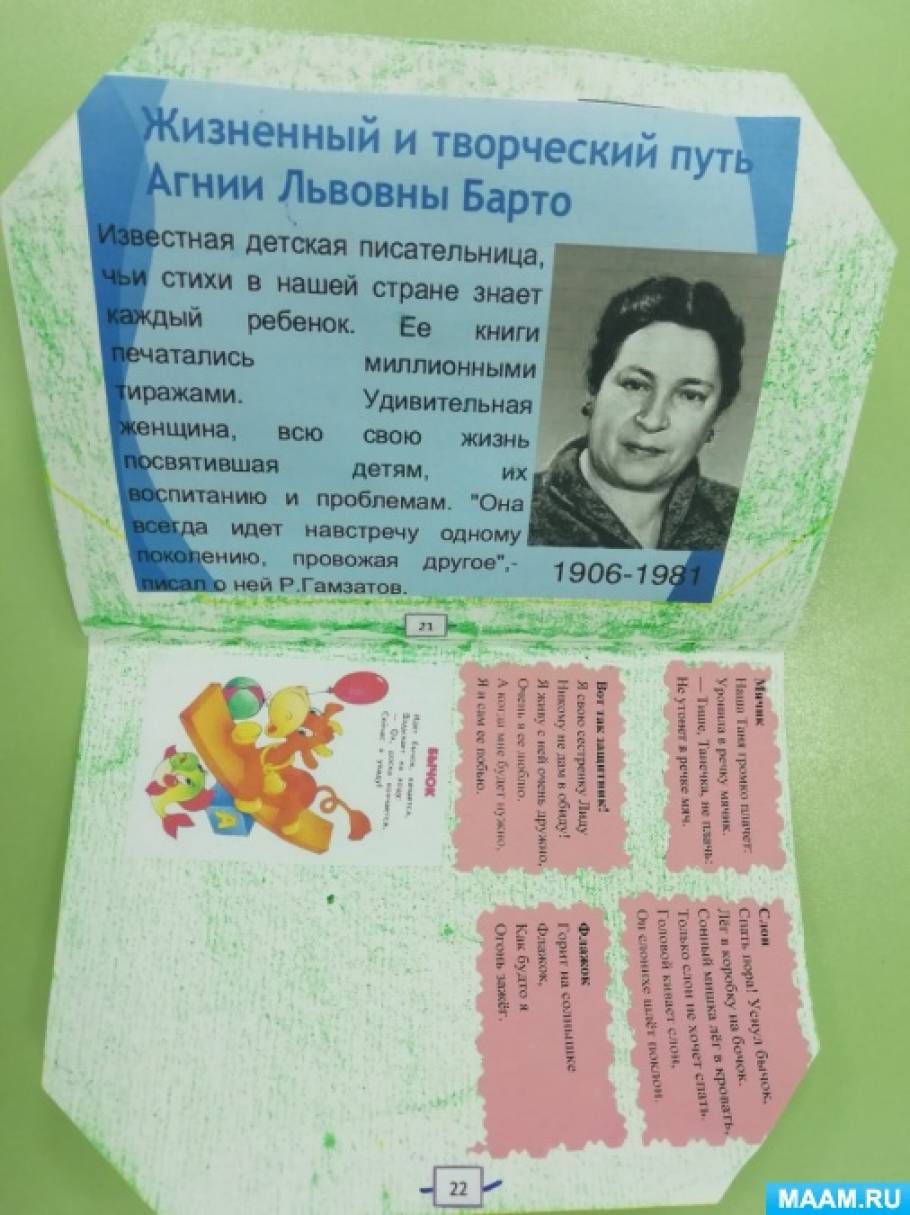 Жизненный и творческий путь
Агнии Львовны Барто
Известная детская писательница,
чьи стихи в нашей стране знает
каждый ребенок. Ее книги
печатались миллионными
тиражами. Удивительная
женщина, всю свою жизнь
посвятившая детям, их
воспитанию и проблемам. "Она
всегда идет навстречу одному
поколению, провожая другое",-
писал о ней Р.Гамзатов.
1906-1981
21
Мячик
Наша Таня громко плачет:
Уронила в речку мячик.
— Тише, Танечка, не плачь:
Не утонет в речке мяч.
Слон
Спать пора! Уснул бычок,
Лёг в коробку на бочок.
Сонный мишка лёг в кровать,
Только слон не хочет спать.
Головой кивает слон,
Он слонихе шлёт поклон.
Вот так защитник!
Я свою сестренку Лиду
Никому не дам в обиду!
Я живу с ней очень дружно,
Очень я ее люблю.
А когда мне будет нужно,
Я и сам ее побью.
Флажок
Горит на солнышке
Флажок,
Как будто я
Огонь зажёг.
БЫЧОК
Идет бычок, качается,
Вздыхает на ходу:
— Ох, доска кончается,
Сейчас я упаду!
А
22
MAAM.RU